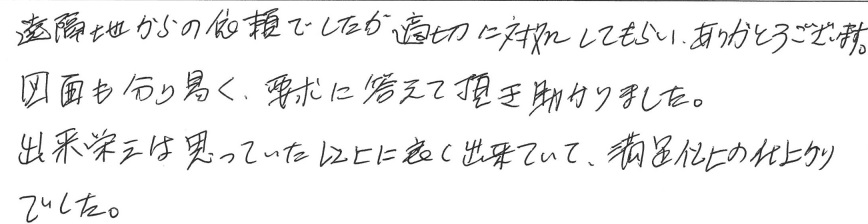 遠隔地からの依頼でしたが適切に対処してもらい、ありがとうございます。
図面も分り易く、要求に答えて頂き助かりました。
出来栄えは思っていた以上に良く出来ていて、満足以上の仕上がり
でした。